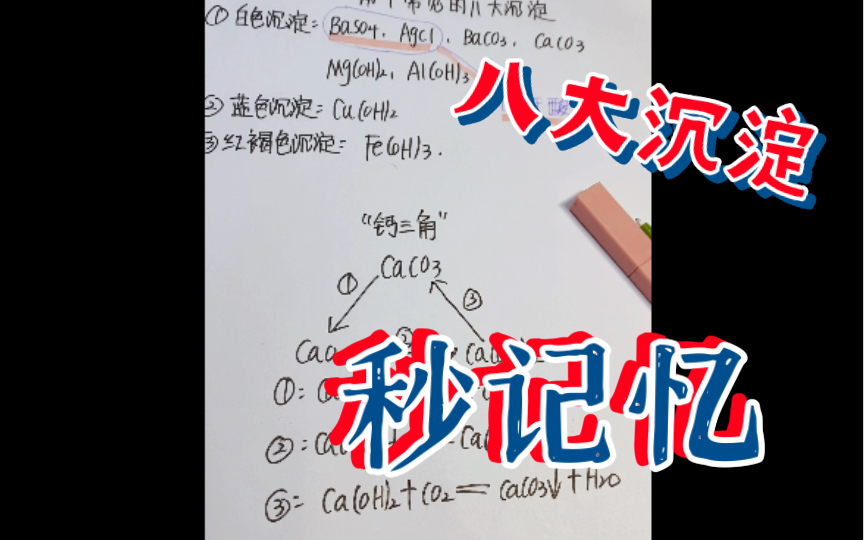 常见的八大沉淀
①白色沉淀: BaSO4、AgCl、BaCO3、CaCO3
Mg(OH)2、Al(OH)3
②蓝色沉淀: Cu(OH)2
酸
③红褐色沉淀: Fe(OH)3.
八大沉淀
"钙三角"
CaCO3
① ③
②
Ca Ca
秒记忆
①:
②: Ca + Ca
③: Ca(OH)2+CO2=CaCO3↓+H2O